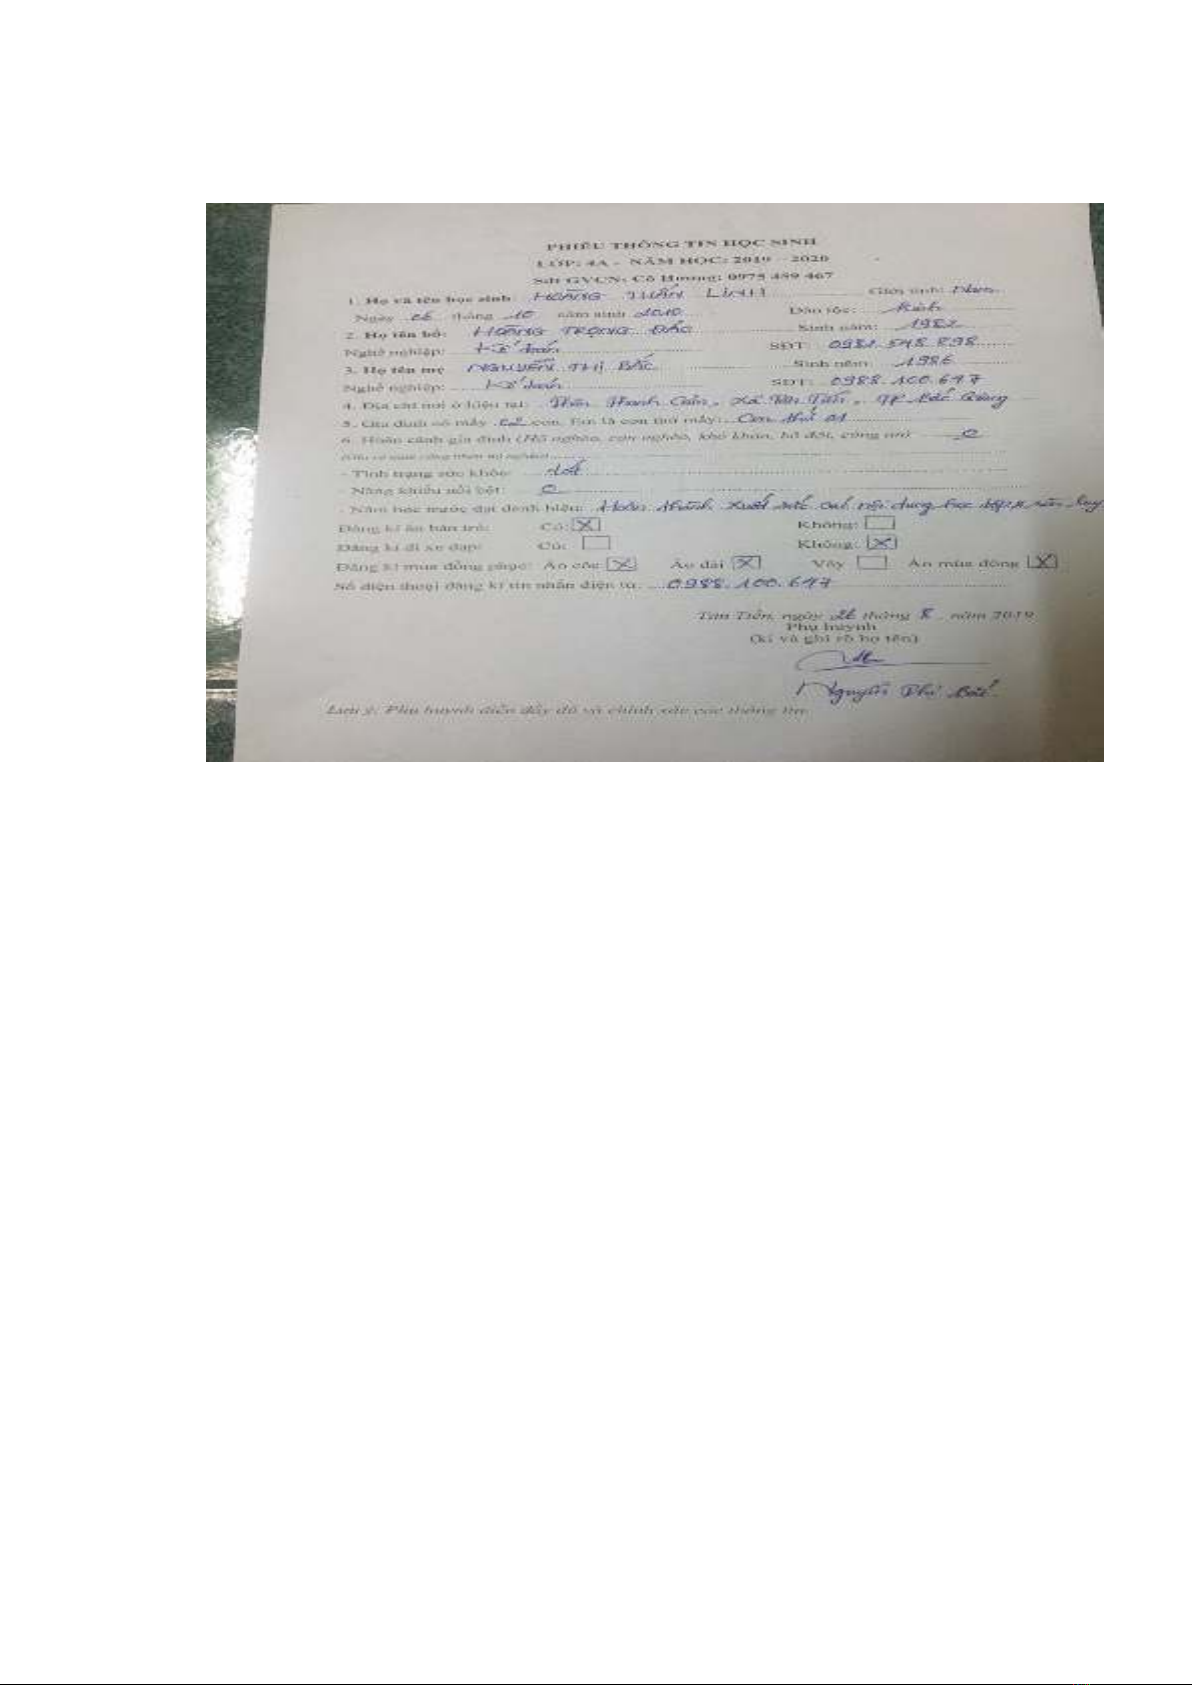 PHIẾU THÔNG TIN HỌC SINH
LỚP: 4A - NĂM HỌC: 2019 - 2020
Sđt GVCN: Cô Hương: 0975 489 467
1. Họ và tên học sinh HOÀNG TUẤN LINH Giới tính: Nam
Ngày 06 tháng 10 năm sinh 2010 Dân tộc: Kinh
2. Họ tên bố: HOÀNG TRỌNG ĐẮC Sinh năm: 1982
Nghề nghiệp: Kế toán SĐT: 0981.548.898
3. Họ tên mẹ NGUYỄN THỊ BẮC Sinh năm: 1986
Nghề nghiệp: Kế toán SĐT: 0988.100.647
4. Địa chỉ nơi ở hiện tại: Thôn Thanh Cảm, Xã Tân Tiến, TP Bắc Giang
5. Gia đình có mấy 02 con. Em là con thứ mấy: Con thứ 01
6. Hoàn cảnh gia đình (Hộ nghèo, cận nghèo, khó khăn, bộ đội, công an)
- Tình trạng sức khỏe: tốt
- Năng khiếu nổi bật:
- Năm học trước đạt danh hiệu: Hoàn thành xuất sắc các nội dung học tập, rèn luyện
Đăng kí ăn bán trú: Có: X Không:
Đăng kí đi xe đạp: Có: Không: X
Đăng kí mua đồng phục: Áo cộc X Áo dài X Váy Áo mùa đông X
Số điện thoại đăng kí tin nhắn điện tử: 0988.100.647
Tân Tiến, ngày 26 tháng 8 năm 2019
Phụ huynh
(kí và ghi rõ họ tên)
Nguyễn Thị Bắc
Lưu ý: Phụ huynh điền đầy đủ và chính xác các thông tin.